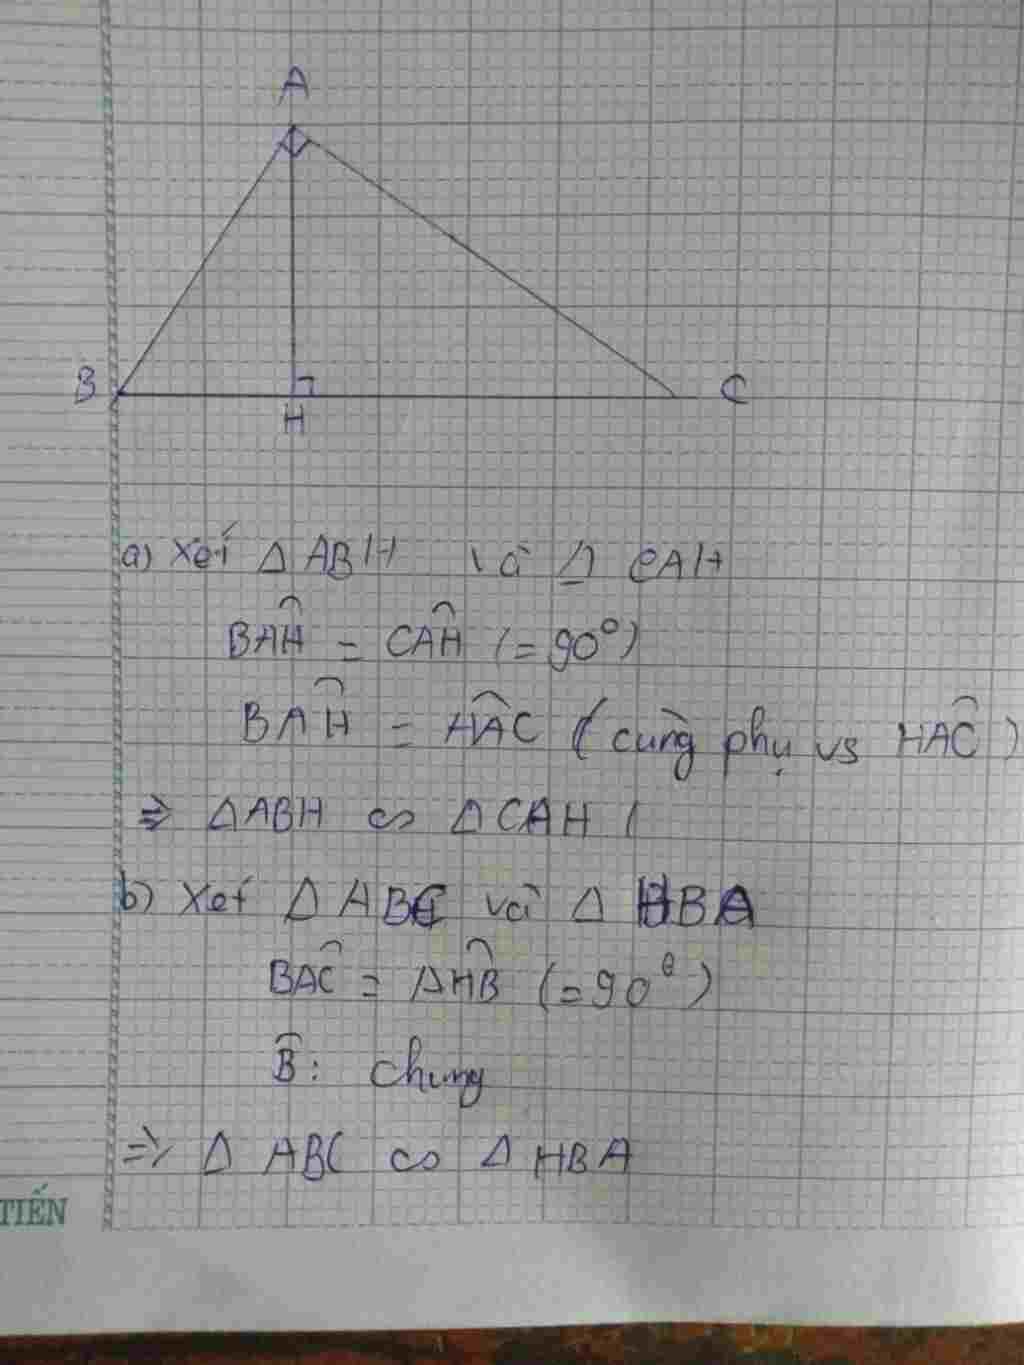 A
B
H
C
a) Xét Δ ABH và Δ CAH
BAĤ = CAĤ (= 90°)
BAĤ = HÂC (cùng phụ vs HAĈ)
=> ΔABH ∽ ΔCAH (
b) Xét Δ ABC và Δ HBA
BAĈ = AHB̂ (= 90°)
B̂: chung
=> Δ ABC ∽ Δ HBA
TIẾN